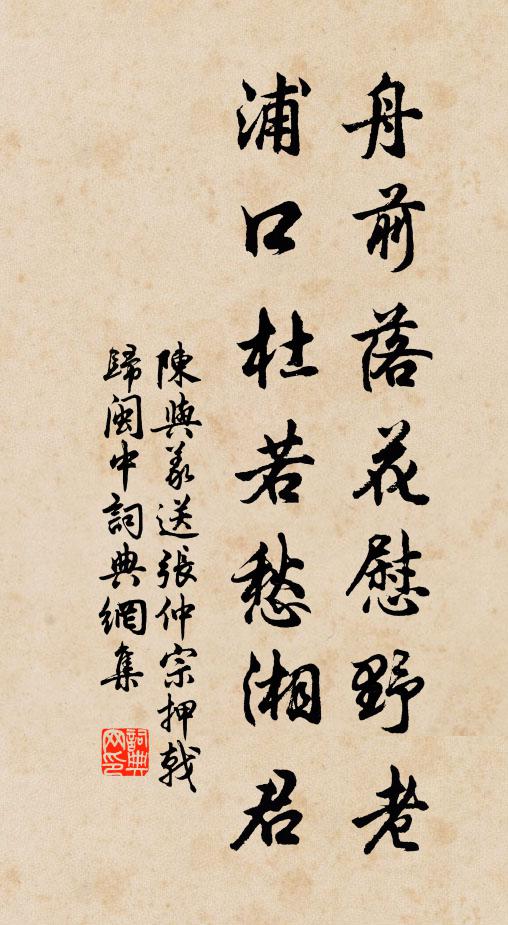 舟前落花慰野老
浦口杜若愁湘君
陳與義送張仲宗押戟
歸閩中詞典網集
詞典
网印